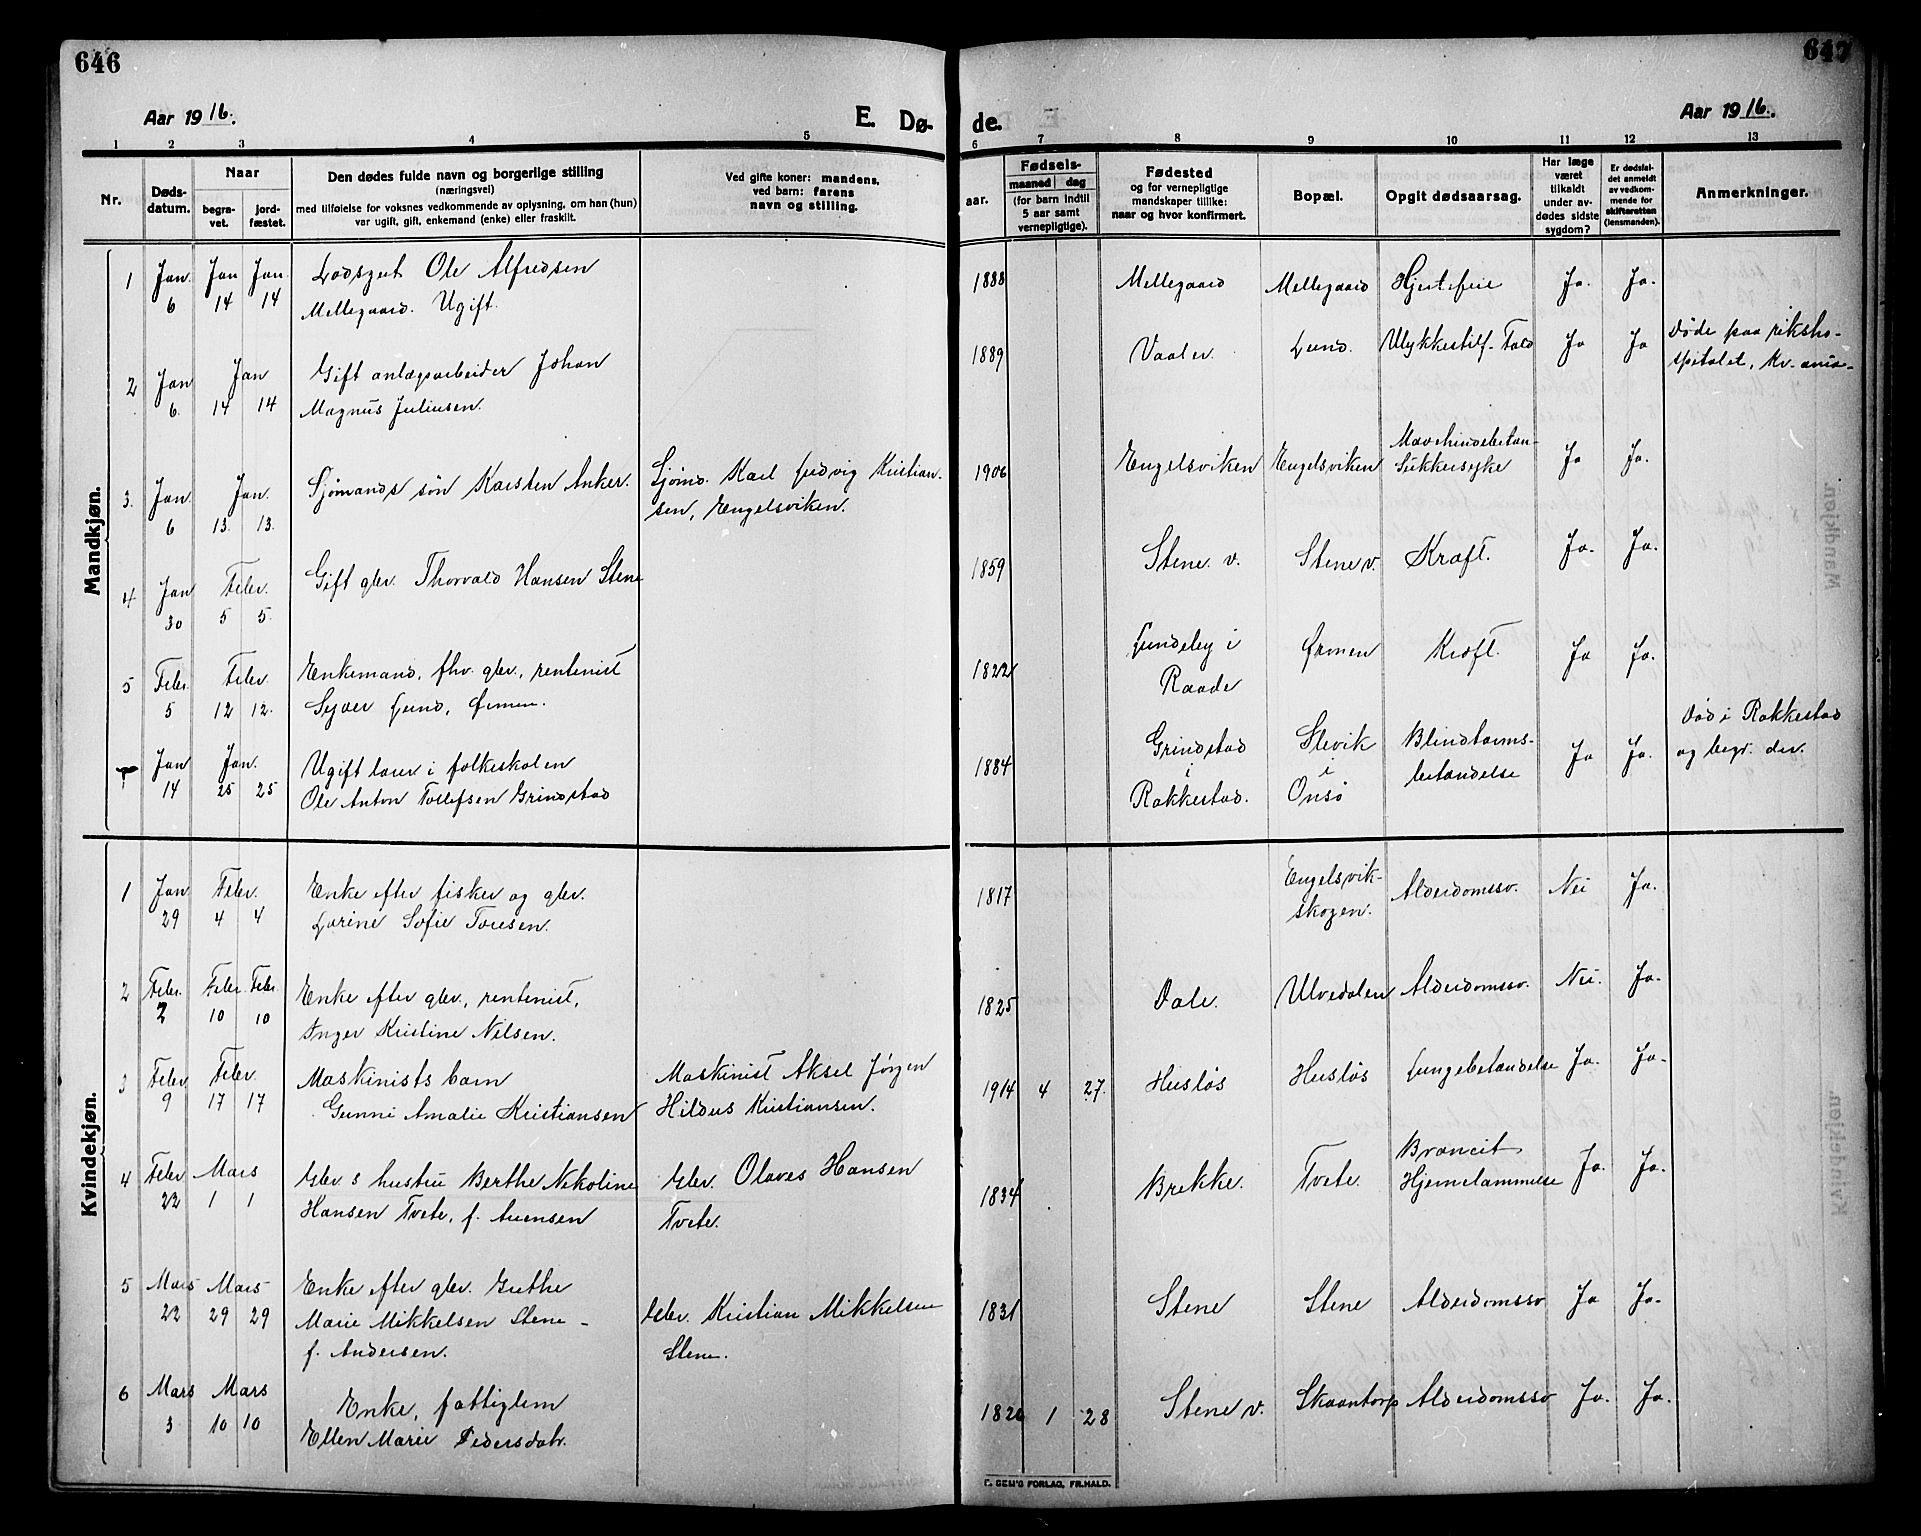 646
647
Aar 1916.
E. Dø-
de.
Aar 1916.
1 2 3 4 5 6 7 8 9 10 11 12 13
Nr.
Døds-
datum.
Naar
begra-
vet.
jord-
fæstet.
Den dødes fulde navn og borgerlige stilling
(næringsvei)
med tilføielse for voksnes vedkommende av oplysning, om han (hun)
var ugift, gift, enkemand (enke) eller fraskilt.
Ved gifte koner: mandens,
ved barn: farens
navn og stilling.
aar.
Fødsels-
maaned dag
(for barn indtil
5 aar samt
vernepligtige).
Fødested
og for vernepligtige
mandskaper tillike:
naar og hvor konfirmert.
Bopæl.
Opgit dødsaarsag.
Har læge
været
tilkaldt
under av-
dødes sidste
sygdom?
Er dødsfal-
det anmeldt
av vedkom-
mende for
skifteretten
(lensmanden).
Anmerkninger.
Mandkjøn.
1 Jan. Jan Jan. Lodsgut Ole Alfredsen 1888 Mellegaard Mellegaard Hjertefeil Ja. Ja.
6 14 14 Mellegaard. Ugift.
2 Jan Jan Gift anlægsarbeider Johan 1889 Vaaler. Lund. Ulykkestilf. Fald Ja Ja Døde paa riksho-
6. 14 14 Magnus Juliusen. spitalet, Kr.ania-
3. Jan. Jan. Sjømands søn Karsten Anker. Sjømd. Karl Ludvig Kristian- 1906 Engelsviken Engelsviken Ja Ja.
6 13. 13. sen, Engelsviken. Sukkersyke
4 Jan Febr. Gift gbr. Thorvald Hansen Stene 1859 Stene v. Stene v. Kræft. Ja. Ja.
30 5 5.
5 Febr. Febr. Enkemand, fhv. gbr., rentenist 1822 Lundeby i Ørmen Kræft. Ja Ja.
5 12 12. Lund, Ørmen. Raade
Jan Jan. Ugift lærer i folkeskolen 1884 Grindstad Slevik Blindtarms- Ja Ja. Død i Rakkestad
14 25 25 Ole Anton Tollefsen Grindstad i i betændelse og begr. der.
Rakkestad. Onsø
Kvindekjøn.
1 Jan Febr. Enke efter fisker og gbr. 1817 Engelsvik- Alderdomssv. Nei Ja.
29 4 4 Lorine Sofie Toresen. skogen.
2 Febr. Febr. Febr. Enke efter gbr., rentenist, 1825 Dale. Ulvedalen Alderdomssv. Nei. Ja.
2 10 10 Inger Kristine Nilsen.
3 Febr. Febr. Maskinists barn Maskinist Aksel Jørgen 1914 4 27. Husløs Husløs Lungebetændelse Ja. Ja.
9 17 17 Gunni Amalie Kristiansen Hildus Kristiansen.
4 Febr. Mars Gbr.s hustru Berthe Nikoline Gbr. Olaves Hansen 1834 Brekke. Tvete. Ja. Ja.
22 1 1 Hansen Tvete, f. Arensen Tvete.
5 Mars Mars Enke efter gbr. Grethe Gbr. Kristian Mikkelsen 1831 Stene Stene Alderdomssv Ja Ja.
22 29 29 Marie Mikkelsen Stene- Stene.
f. Andersen.
6 Mars Mars Enke, fattiglem 1820 1 28 Stene v. Skaantorp Alderdomssv Ja. Ja.
3 10 10 Ellen Marie Pedersdatr.
GEM'S FORLAG, FR.HALD.